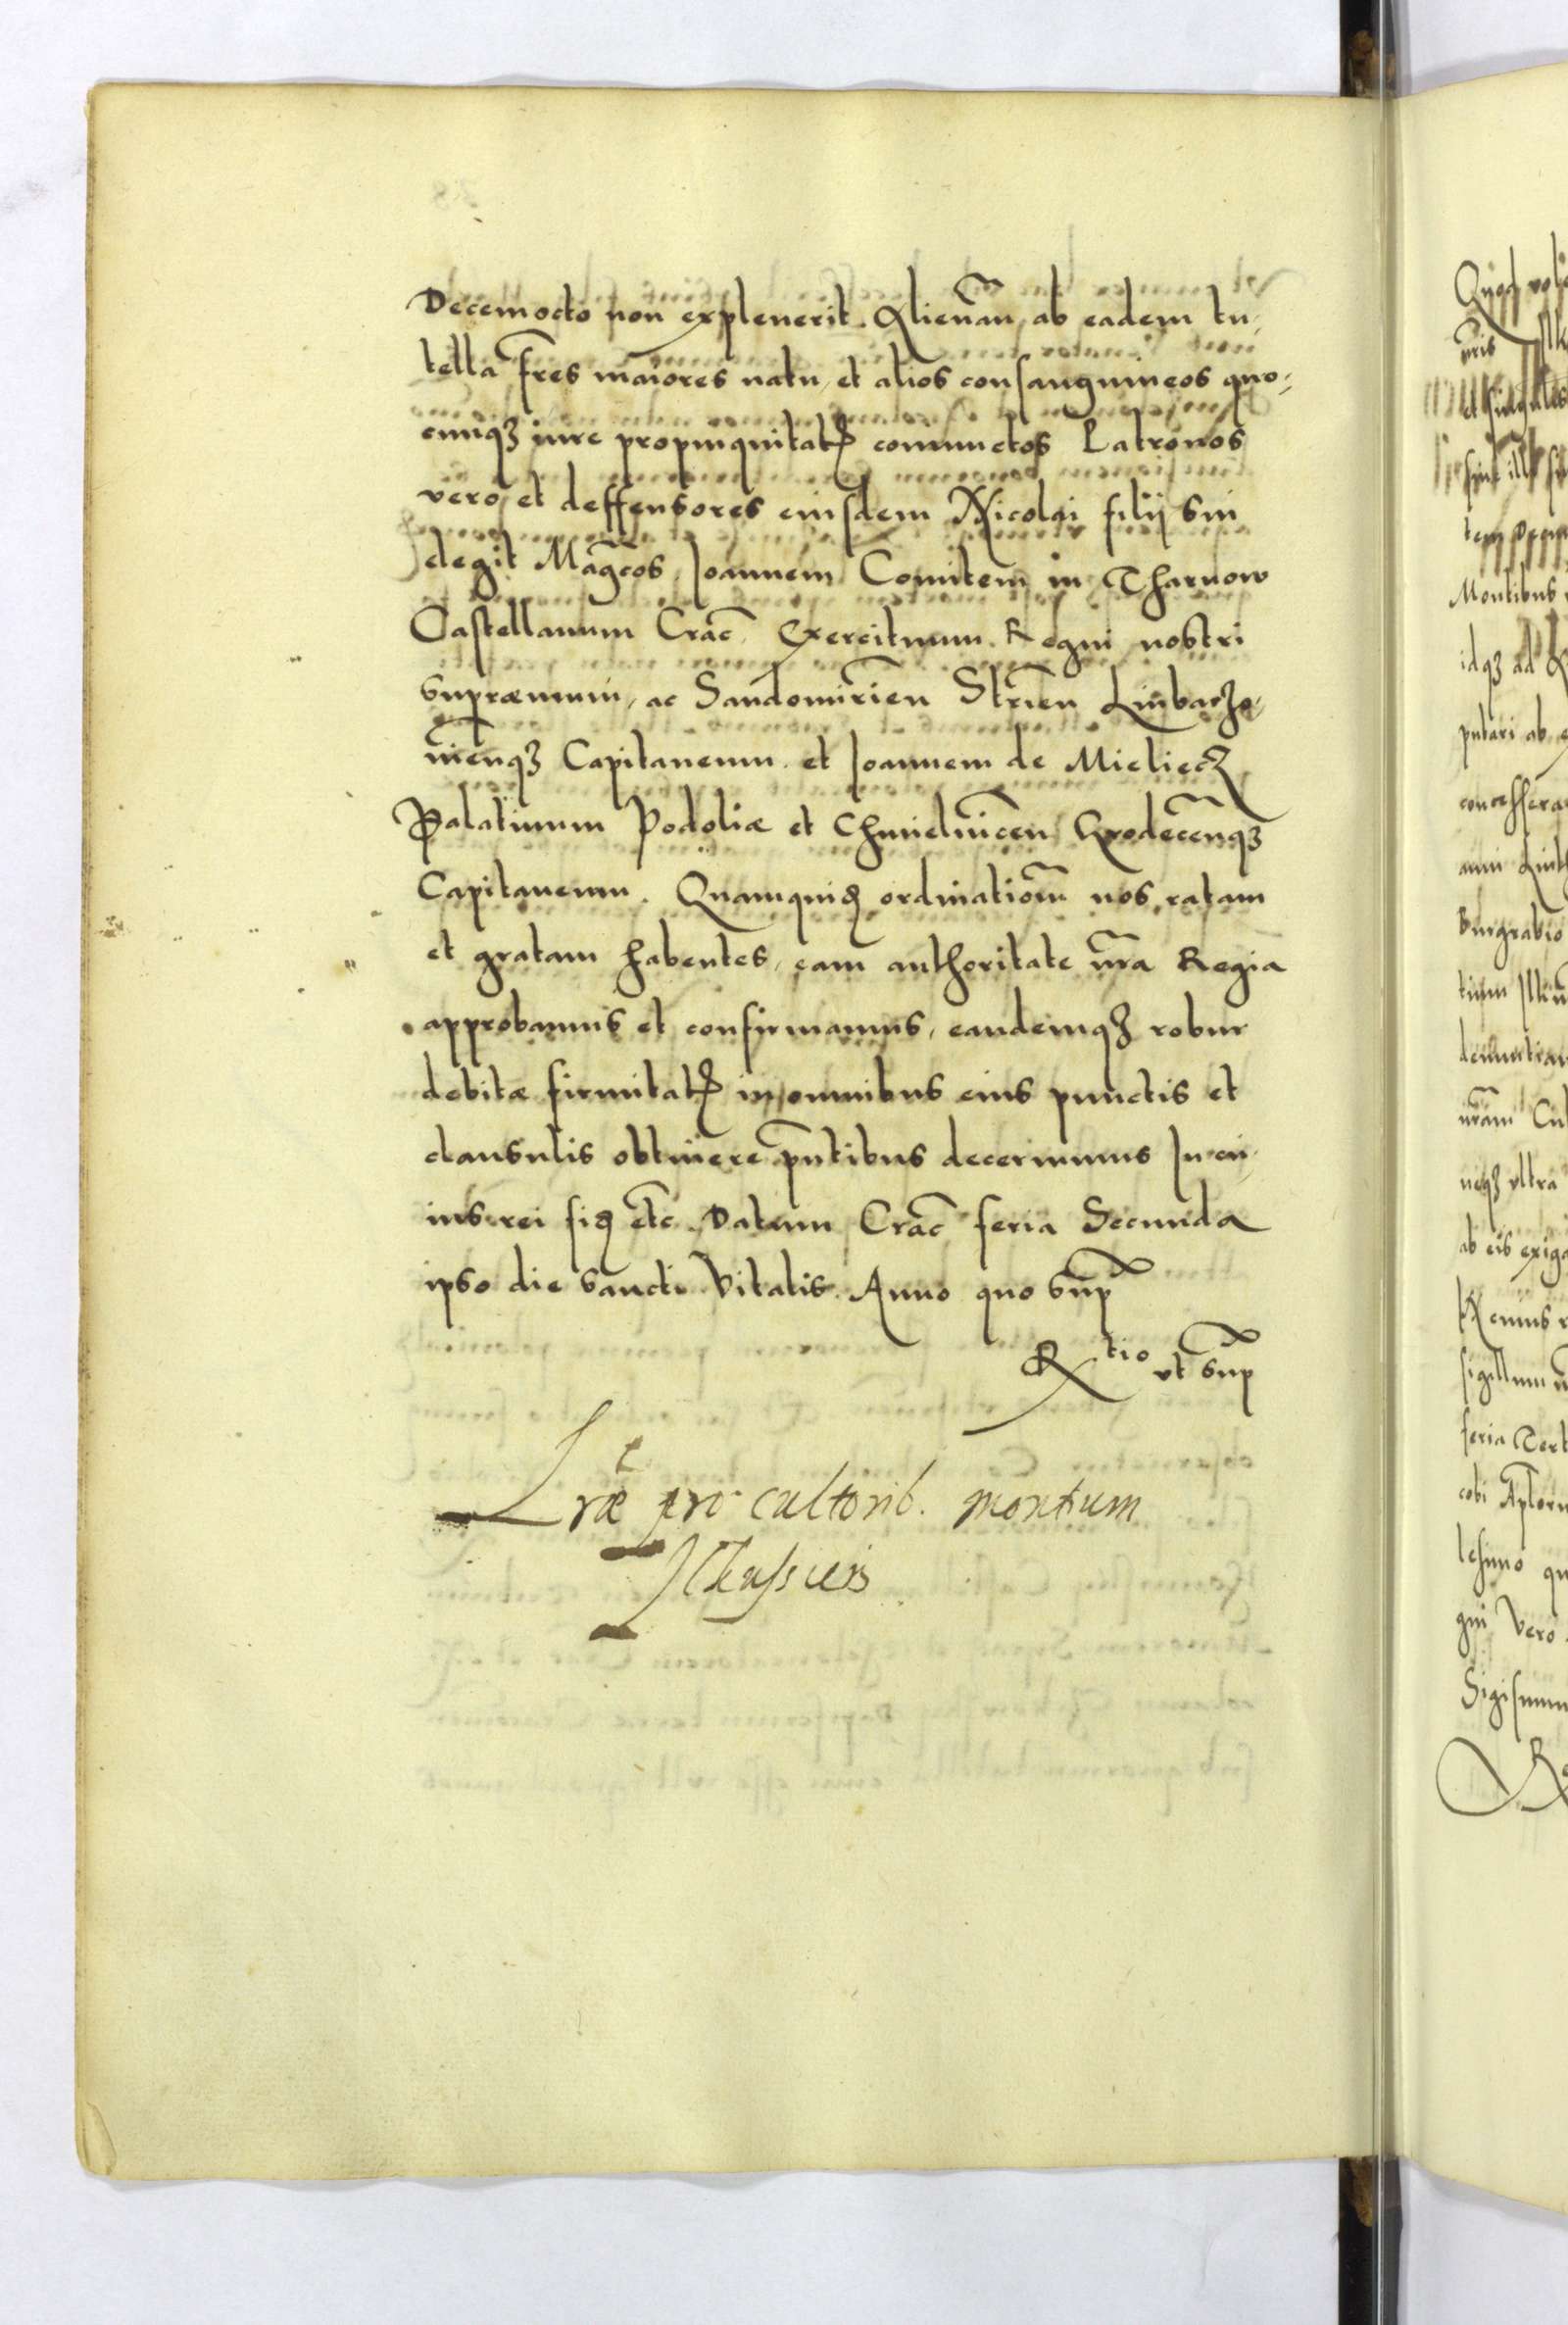 Decemocto non explenerit. Alienan̄ ab eadem tu-
tella fr̄es maiores natu, et alios consanguineos quo-
cunqꝫ iure propinquitatꝭ coniunctos Patronos
vero et deffensores eiusdem Nicolai filij sui
elegit Mag̅cos Joannem Comitem in Tharnow
Castellanum Crac̄. Exercituum Regni nostri
supraemum, ac Sandomirien̄ Strien̄ Liubaczo-
vien̄qꝫ Capitaneum. et Joannem de Mielecz
Palatinum Podoliæ et Chmielnicen̄ Grodecen̄qꝫ
Capitaneum. Quamquidꝫ ordinatiōm nos ratam
et gratam habentes, eam authoritate nr̄a Regia
approbamus et confirmamus, eandemqꝫ robur
debitæ firmitatꝭ in omnibus eius punctis et
clausulis obtinere pn̄tibus decernimus In cu-
ius rei fidꝫ etc̄. Datum Crac̄ feria Secunda
ipso die sancti Vitalis. Anno quo sup̄
R tio vt sup̄
Lr̄æ pro cultorib. montium
Ilkussien̄
Quod
nr̄is
Montibus
idqꝫ ad
putari ab
concessera
nr̄am
neqꝫ vltra
ab eis exiga
sigillum
feria Tert
cobi Aplor
lesimo qu
gni vero
Sigismun